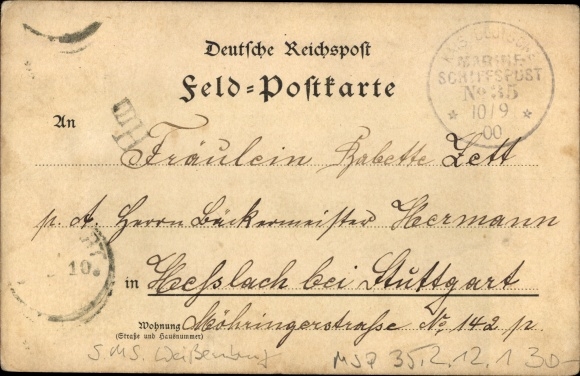 Deutsche Reichspost
Feld=Postkarte
KAIS. DEUTSCHE
MARINE-
SCHIFFSPOST
No 35
* 10/9 *
00
An
Fräulein Babette Zett
p. A. Herrn Bäckermeister Hermann
10.
in Heßlach bei Stuttgart
Wohnung Möhringerstraße No. 142 p.
(Straße und Hausnummer)
S.M.S. Weißenburg
MSP 35.2.12.1 30-